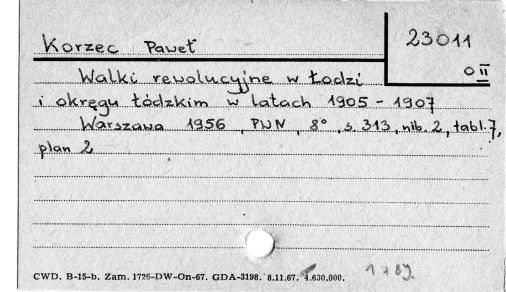 Korzec Paweł
23011
0 II
Walki rewolucyjne w Łodzi
i okręgu łódzkim w latach 1905 - 1907
Warszawa 1956, PWN, 8°, s. 313, nlb. 2, tabl. 7,
plan 2
CWD. B-15-b. Zam. 1726-DW-On-67. GDA-3198. 8.11.67. 4.630.000.